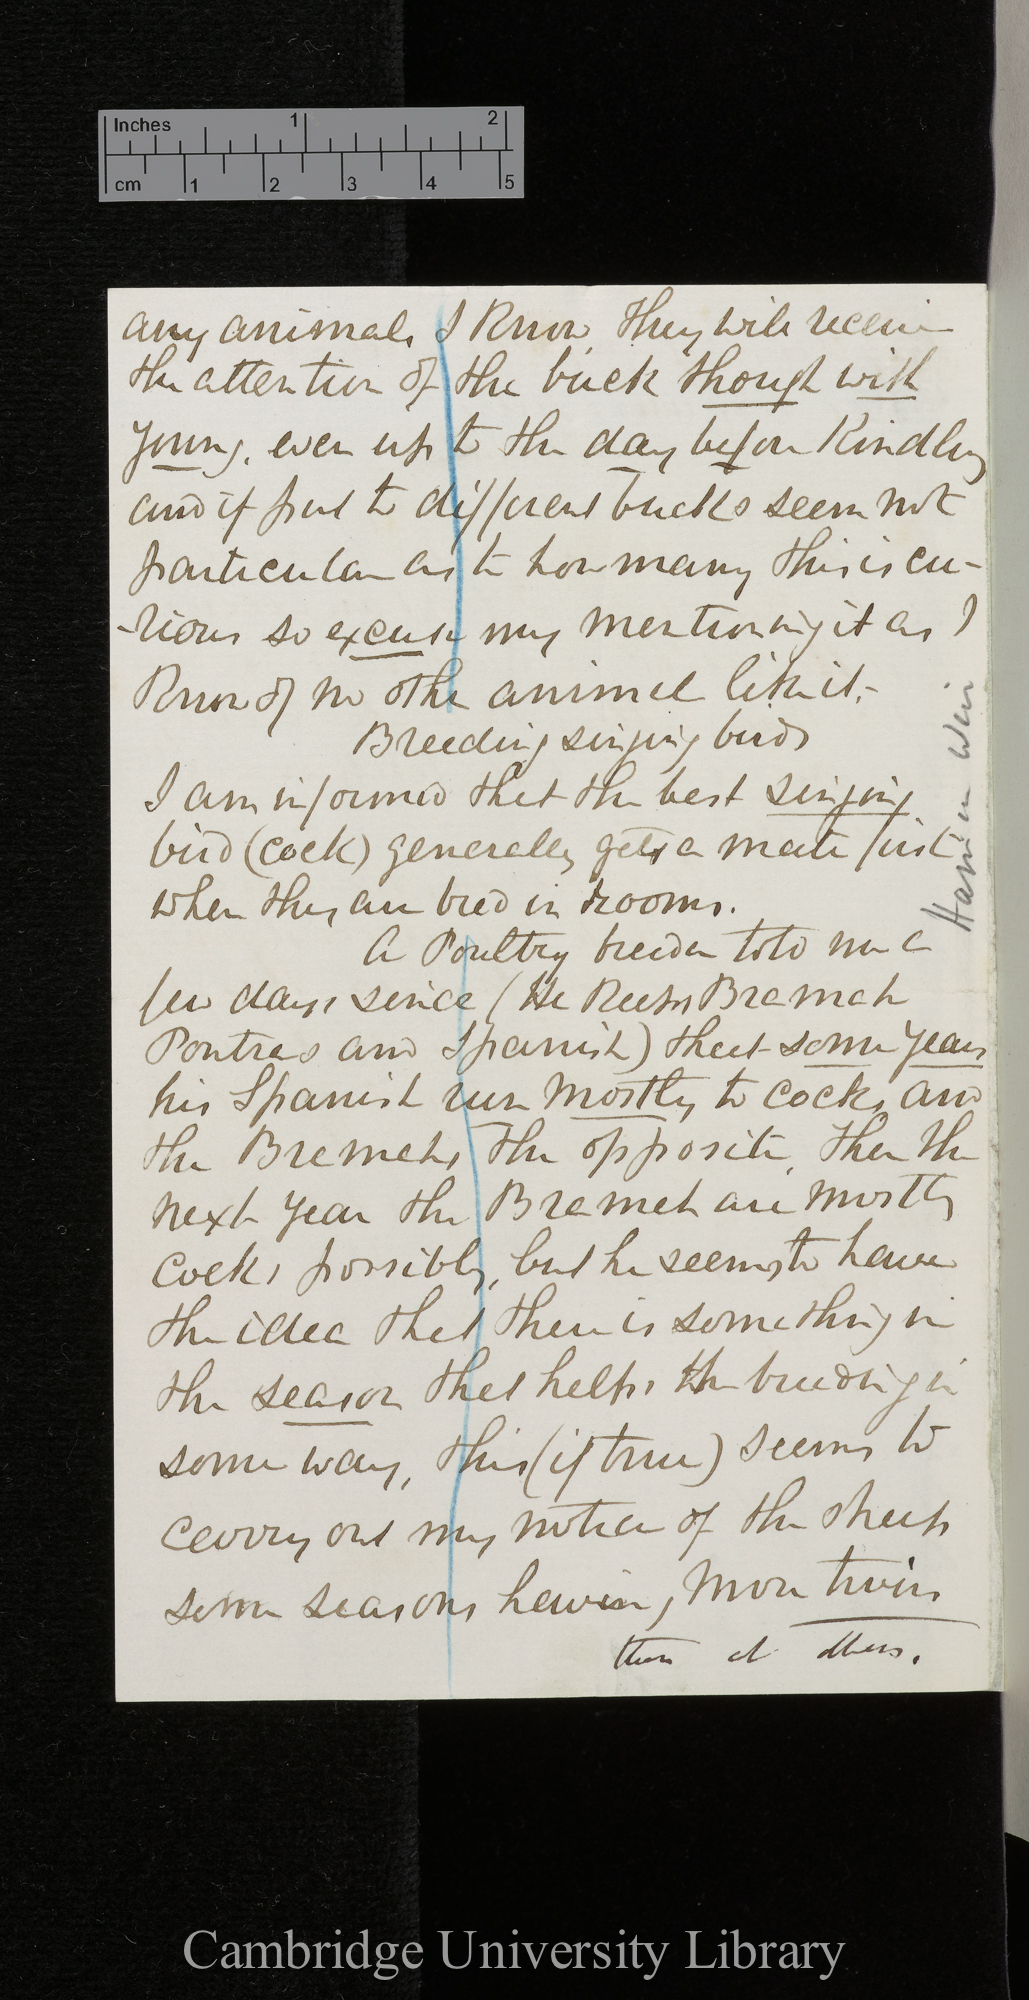 Inches 1 2
cm 1 2 3 4 5
any animals I know, they will receive
the attention of the buck though with
young, even up to the day before Kindling
and if put to different bucks seem not
particular as to how many this is cu-
-rious so excuse my mentioning it as I
know of no other animal like it,-
Breeding singing birds
I am informed that the best singing
bird (cock) generally gets a mate first
when they are bred in rooms.
A Poultry breeder told me a
few days since (He keeps Bramah
and Spanish) that some years
his Spanish run mostly to cocks, and
the Bramahs the opposite, then the
next year the Bramah are mostly
cocks possibly, but he seems to have
the idea that there is something in
the season that helps the breeding in
some way, this (if true) seems to
carry out my notice of the sheep
some seasons having more twins
than at others.
Harrison Weir
Cambridge University Library